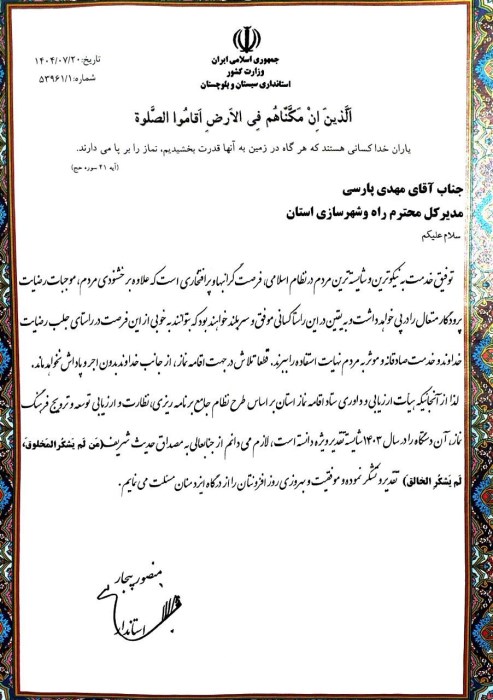 جمهوری اسلامی ایران
وزارت کشور
استانداری سیستان و بلوچستان
تاریخ: ۱۴۰۴/۰۷/۲۰
شماره: ۵۳۹۶۱/۱
اَلَّذینَ اِنْ مَکَّنّاهُم فِی الاَرضِ اَقامُوا الصَّلوة
یاران خدا کسانی هستند که هر گاه در زمین به آنها قدرت بخشیدیم، نماز را بر پا می دارند.
(آیه ۴۱ سوره حج)
جناب آقای مهدی پارسی
مدیرکل محترم راه وشهرسازی استان
سلام علیکم
توفیق خدمت به نیکوترین و شایسته ترین مردم در نظام اسلامی، فرصت گرانبها و پر افتخاری است که علاوه بر خشنودی مردم، موجبات رضایت
پروردگار متعال را در پی خواهد داشت و به یقین در این راستا کسانی موفق و سربلند خواهند بود که بتوانند به خوبی از این فرصت در راستای جلب رضایت
خداوند و خدمت صادقانه و موثر به مردم نهایت استفاده را ببرند. قطعا تلاش در جهت اقامه نماز، از جانب خداوند بدون اجر و پاداش نخواهد ماند.
لذا از آنجائیکه هیأت ارزیابی و داوری ستاد اقامه نماز استان بر اساس طرح نظام جامع برنامه ریزی، نظارت و ارزیابی توسعه و ترویج فرهنگ
نماز، آن دستگاه را در سال ۱۴۰۳ شایسته تقدیر ویژه دانسته است، لازم می دانم از جنابعالی به مصداق حدیث شریف (مَن لَم یَشکُرِ المَخلوق،
لَم یَشکُرِ الخالق) تقدیر و تشکر نموده و موفقیت و بهروزی روز افزونتان را از درگاه ایزد منان مسئلت می نمایم.
منصور بیجار
استاندار